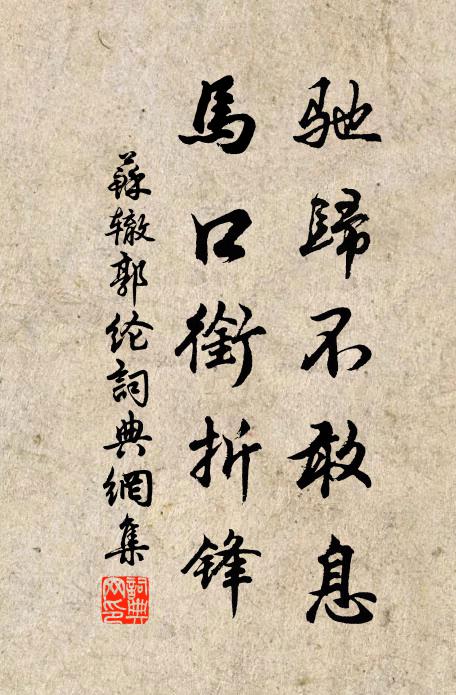 驰歸不敢息
馬口銜折锋
蘇辙郭纶詞典網集
詞典